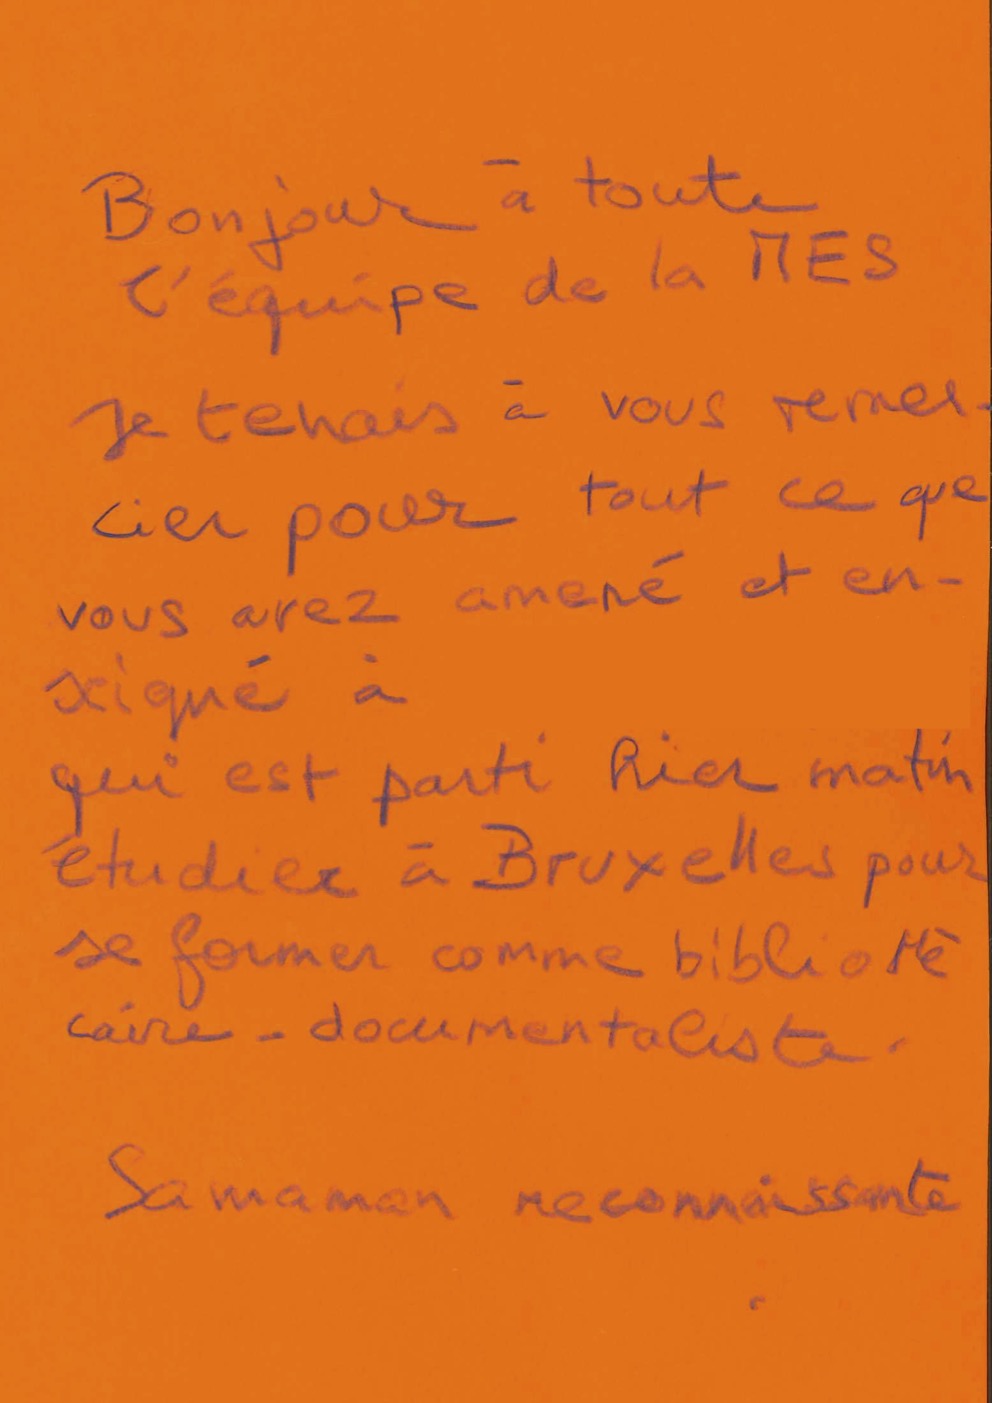 Bonjour à toute
l'équipe de la MES
Je tenais à vous remer-
cier pour tout ce que
vous avez amené et en-
seigné à
qui est parti hier matin
étudier à Bruxelles pour
se former comme bibliothè
caire - documentaliste.
Sa maman reconnaissante